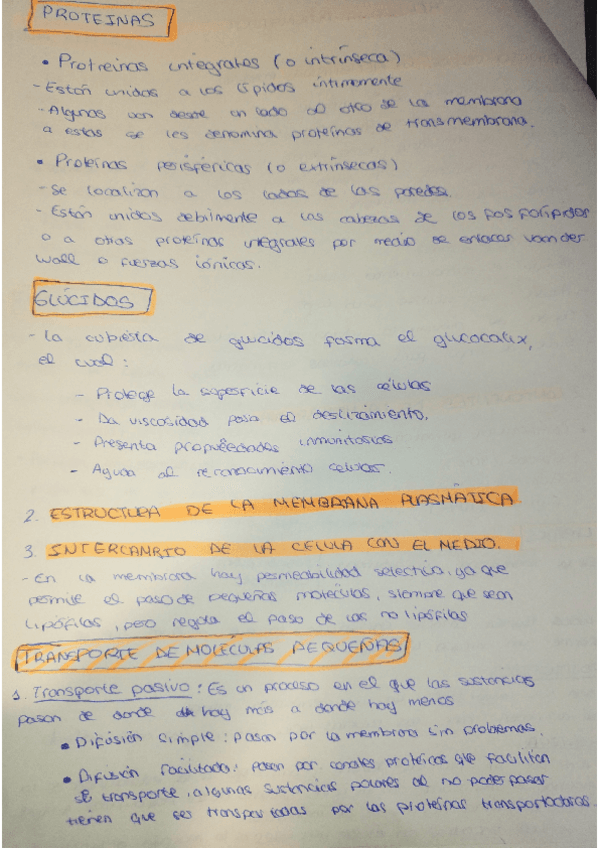 PROTEINAS
• Protreinas integrales (o intrínseca)
- Están unidas a los lípidos íntimamente
- Algunas van desde un lado al otro de la membrana
a estas se les denomina proteínas de transmembrana.
• Proteínas perisféricas (o extrínsecas)
- Se localizan a los lados de las paredes.
- Están unidos debilmente a las cabezas de los fosfolípidos
o a otras proteínas integrales por medio de enlaces vander
Wall o fuerzas iónicas.
GLÚCIDOS
- La cubierta de glucidos forma el glucocalix,
el cual:
- Protege la superficie de las células
- Da viscosidad para el deslizamiento.
- Presenta propiedades inmunitarias
- Ayuda al reconocimiento celular.
2. ESTRUCTURA DE LA MEMBRANA PLASMÁTICA
3. INTERCAMBIO DE LA CELULA CON EL MEDIO.
- En la membrana hay permeabilidad selectiva, ya que
permite el paso de pequeñas moleculas, siempre que sean
lipófilas, pero regula el paso de las no lipófilas
TRANSPORTE DE MOLÉCULAS PEQUEÑAS
1. Transporte pasivo: Es un proceso en el que las sustancias
pasan de donde hay más a donde hay menos
• Difusión simple: pasan por la membrana sin problemas.
• Difusión facilitada: pasan por canales protéicos que facilitan
el transporte, algunas sustancias polares al no poder pasar
tienen que ser transportadas por las proteínas transportadoras.